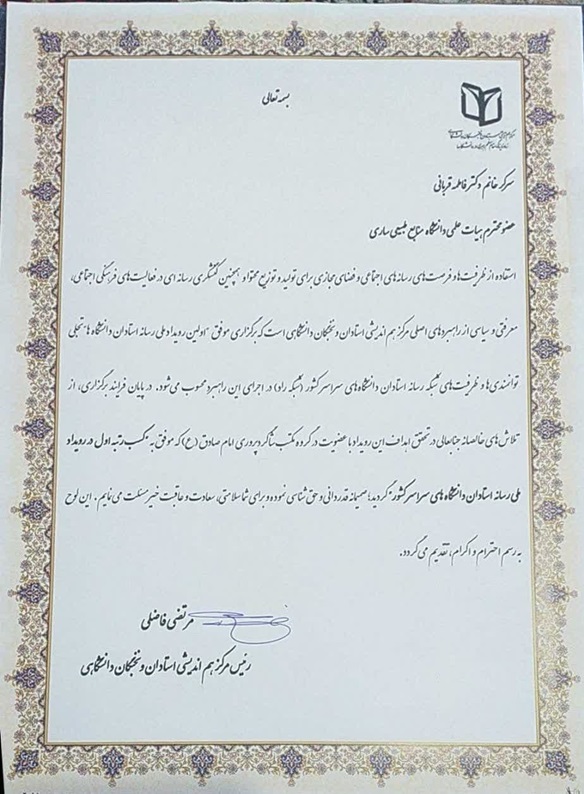 بسمه تعالی
سرکار خانم دکتر فاطمه قربانی
عضو محترم هیات علمی دانشگاه منابع طبیعی ساری
استفاده از ظرفیت‌ها و فرصت‌های رسانه‌های اجتماعی و فضای مجازی برای تولید و توزیع محتوا و همچنین کنشگری رسانه ای در فعالیت‌های فرهنگی اجتماعی،
معرفتی و سیاسی از راهبردهای اصلی مرکز هم اندیشی استادان و نخبگان دانشگاهی است که برگزاری موفق "اولین رویداد ملی رسانه استادان دانشگاه ها" تجلی
توانمندی‌ها و ظرفیت‌های شبکه رسانه استادان دانشگاه‌های سراسر کشور (شبکه راد) در اجرای این راهبرد محسوب می‌شود. در پایان فرایند برگزاری، از
تلاش‌های خالصانه جنابعالی در تحقق اهداف این رویداد با عضویت در گروه مکتب شاگردپروری امام صادق (ع) که موفق به "کسب رتبه اول در رویداد
ملی رسانه استادان دانشگاه های سراسر کشور" گردید؛ صمیمانه قدردانی و حق شناسی نموده و برای شما سلامتی، سعادت و عاقبت خیر مسئلت می نمایم. این لوح
به رسم احترام و اکرام، تقدیم می گردد.
مرتضی فاضلی
رئیس مرکز هم اندیشی استادان و نخبگان دانشگاهی